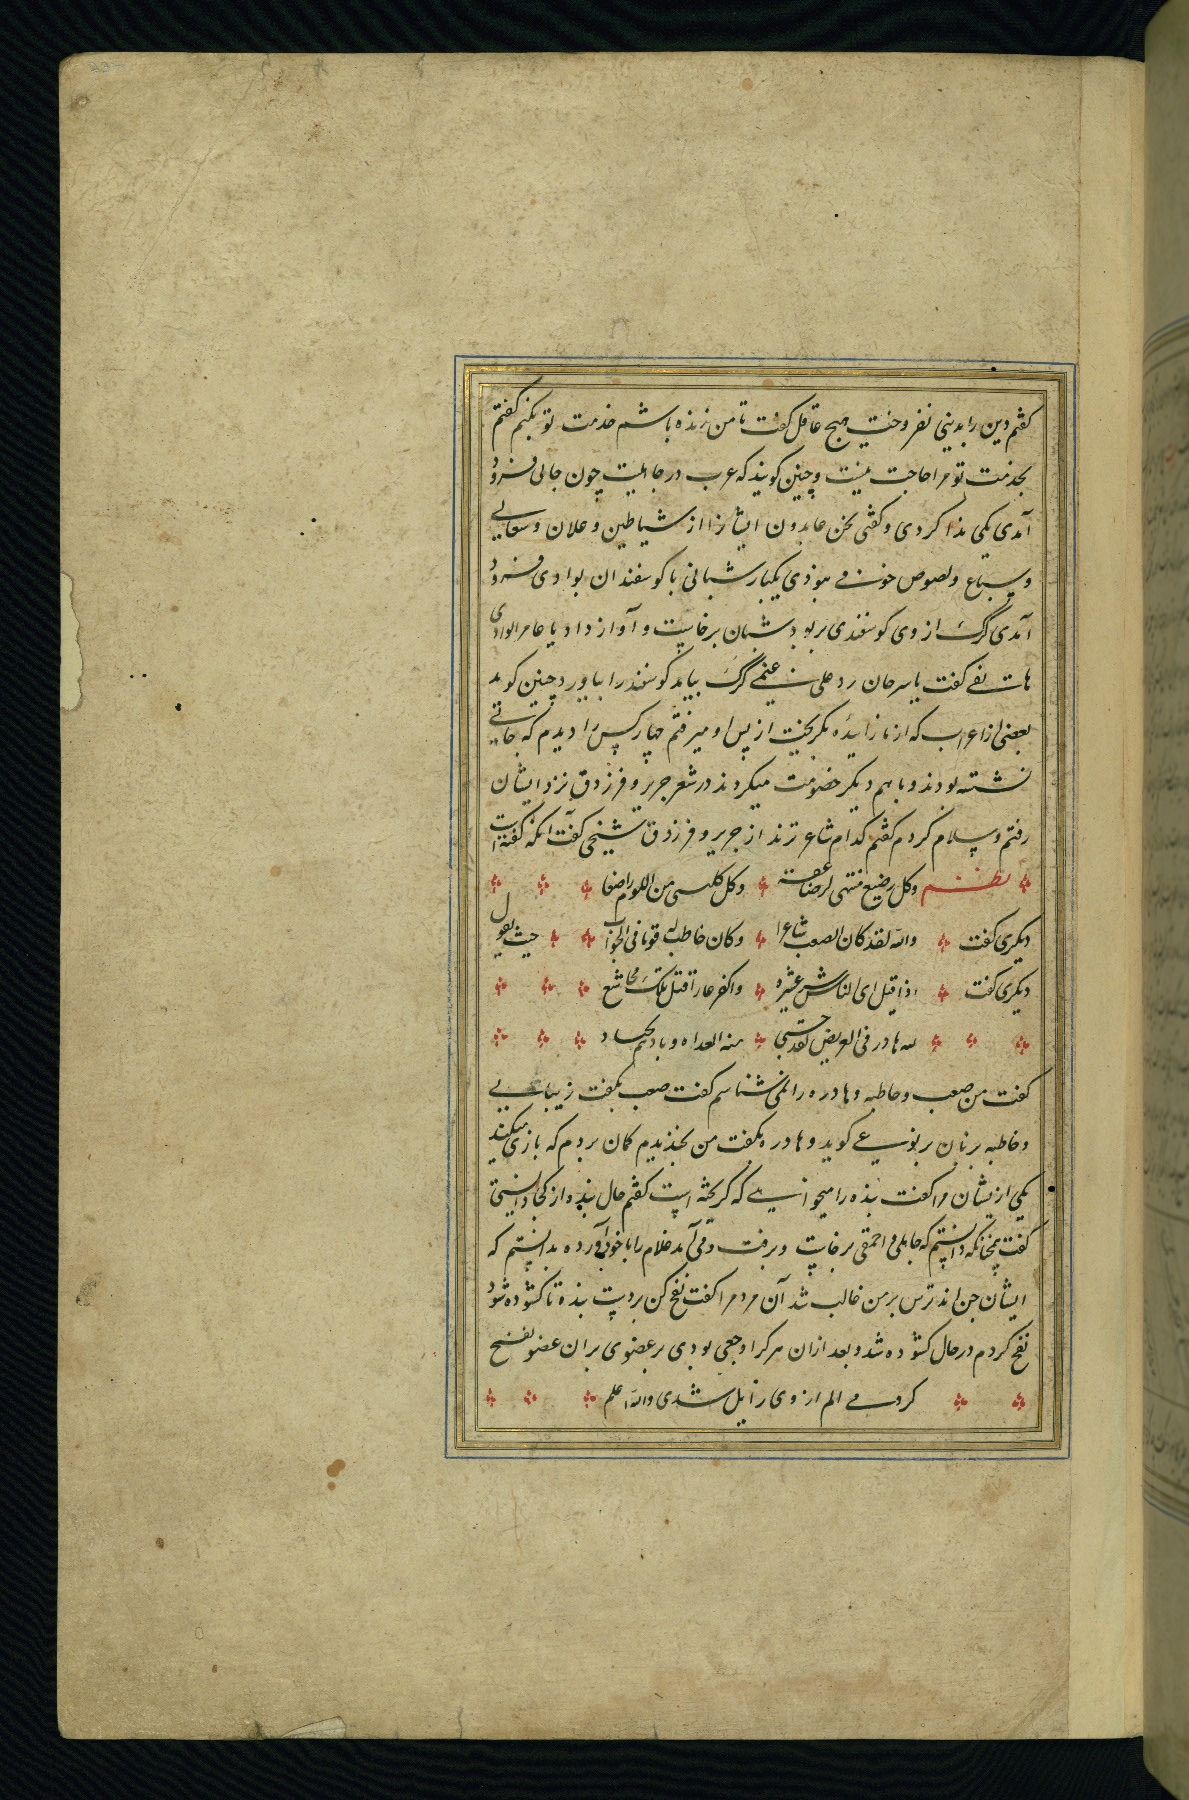 گفتم دین را بدینی نفروخت هیچ عاقل گفت تا من زنده باشم خدمت تو بکنم گفتم
بخدمت تو مرا حاجت نیست و چنین گویند که عرب در جاهلیت چون جایی فرود
آمدی یکی ندا کردی و گفتی نحن عایذون ایشانرا از شیاطین و غلان و سعالی
و سباع و لصوص خوف نبودی یکبار شبانی با گوسفندان بوادی فرود
آمدی گرگ از وی گوسفندی بربود شبان برخاست و آواز داد یا عامر الوادی
هاتفی گفت یا سرحان رد علی غنمی گرگ بیامد گوسفند را بیاورد چنین گوید
بعضی از اعراب که از ما زاینده بگریخت از پس او میرفتم چهار کس را دیدم که جایی
نشسته بودند و با هم دیگر خصومت میکردند در شعر جریر و فرزدق نزد ایشان
رفتم و سلام کردم گفتم کدام شاعرترند از جریر و فرزدق شیخی گفت آنکه گفته است
نظم وکل رضیع منتهی لرضاعة وکل کلیبی من اللوم راضعا
دیگری گفت والله لقد کان الصعب شاعرا وکان خاطبه قوما فی الجواب حیث یقول
دیگری گفت اذا قیل ای الناس شر عشیره واکفر عارا قیل تلک مجاشع
لله هادر فی العریض لقد منه العداه و
گفت من صعب و خاطبه و هادره را نمی شناسم گفت صعب بگفت زیبایی
و خاطبه بر زبان یربوعی گوید و هادره بگفت من بخندیدم گمان بردم که بازی میکنند
یکی ازیشان مرا گفت بنده را میخواهی که گریخته است گفتم حال بنده از کجا دانستی
گفت بمجانکه دانستم که جاهل و احمقی برخاست و برفت و می آمد غلام را با خود آورده بدانستم که
ایشان جن اند ترس بر من غالب شد آن مرد مرا گفت نفخ کن بر دست بنده تا گشوده شود
نفخ کردم در حال گشوده شد و بعد ازان هر کرا وجعی بودی بر عضوی بران عضو نفخ
کردمی الم از وی زایل شدی والله اعلم